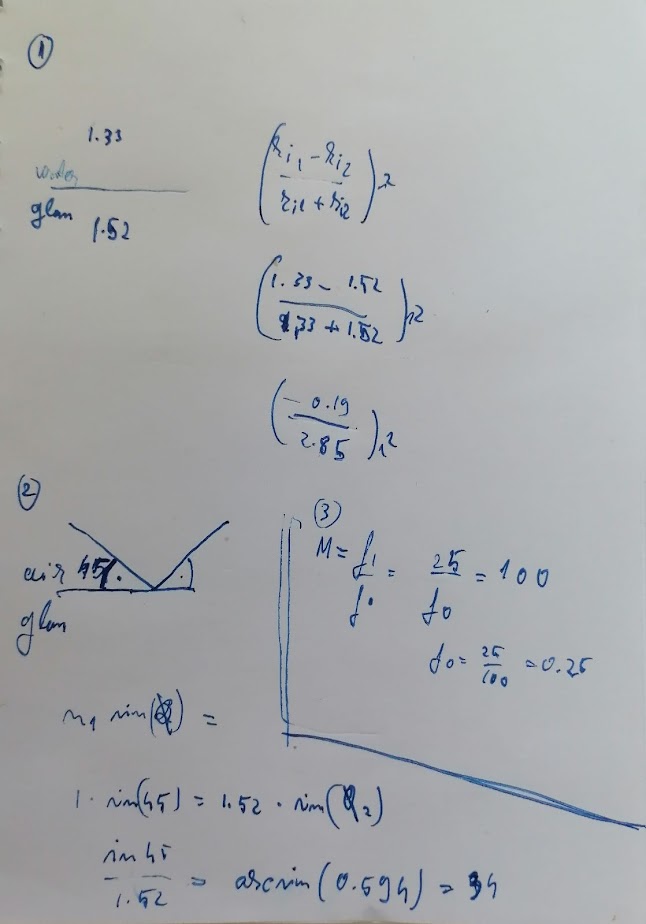 ①
1.33
water
glan
1.52
(n_i1 - n_i2 / n_i1 + n_i2)^2
(1.33 - 1.52 / 1.33 + 1.52)^2
(- 0.19 / 2.85)^2
②
air 45
glan
n1 sin( ) =
1 · sin(45) = 1.52 · sin(θ2)
sin 45 / 1.52 = arcsin(0.594) = 34
③
M = f1 / f0 = 25 / f0 = 100
f0 = 25 / 100 = 0.25